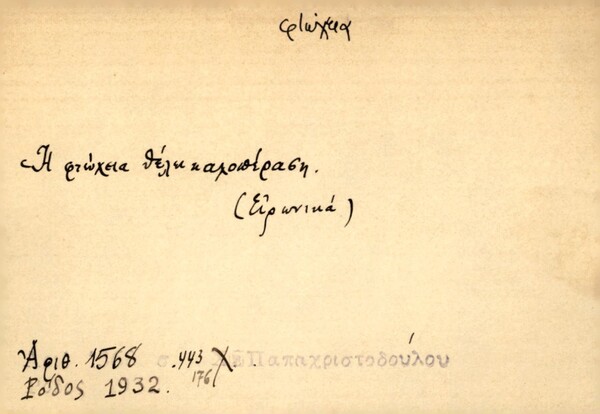 φτώχεια
Ἡ φτώχεια θέλει καλοπέραση.
(Εἰρωνικά)
Ἀριθ. 1568 σ. 443 Χ. Παπαχριστοδούλου
176
Ρόδος 1932.